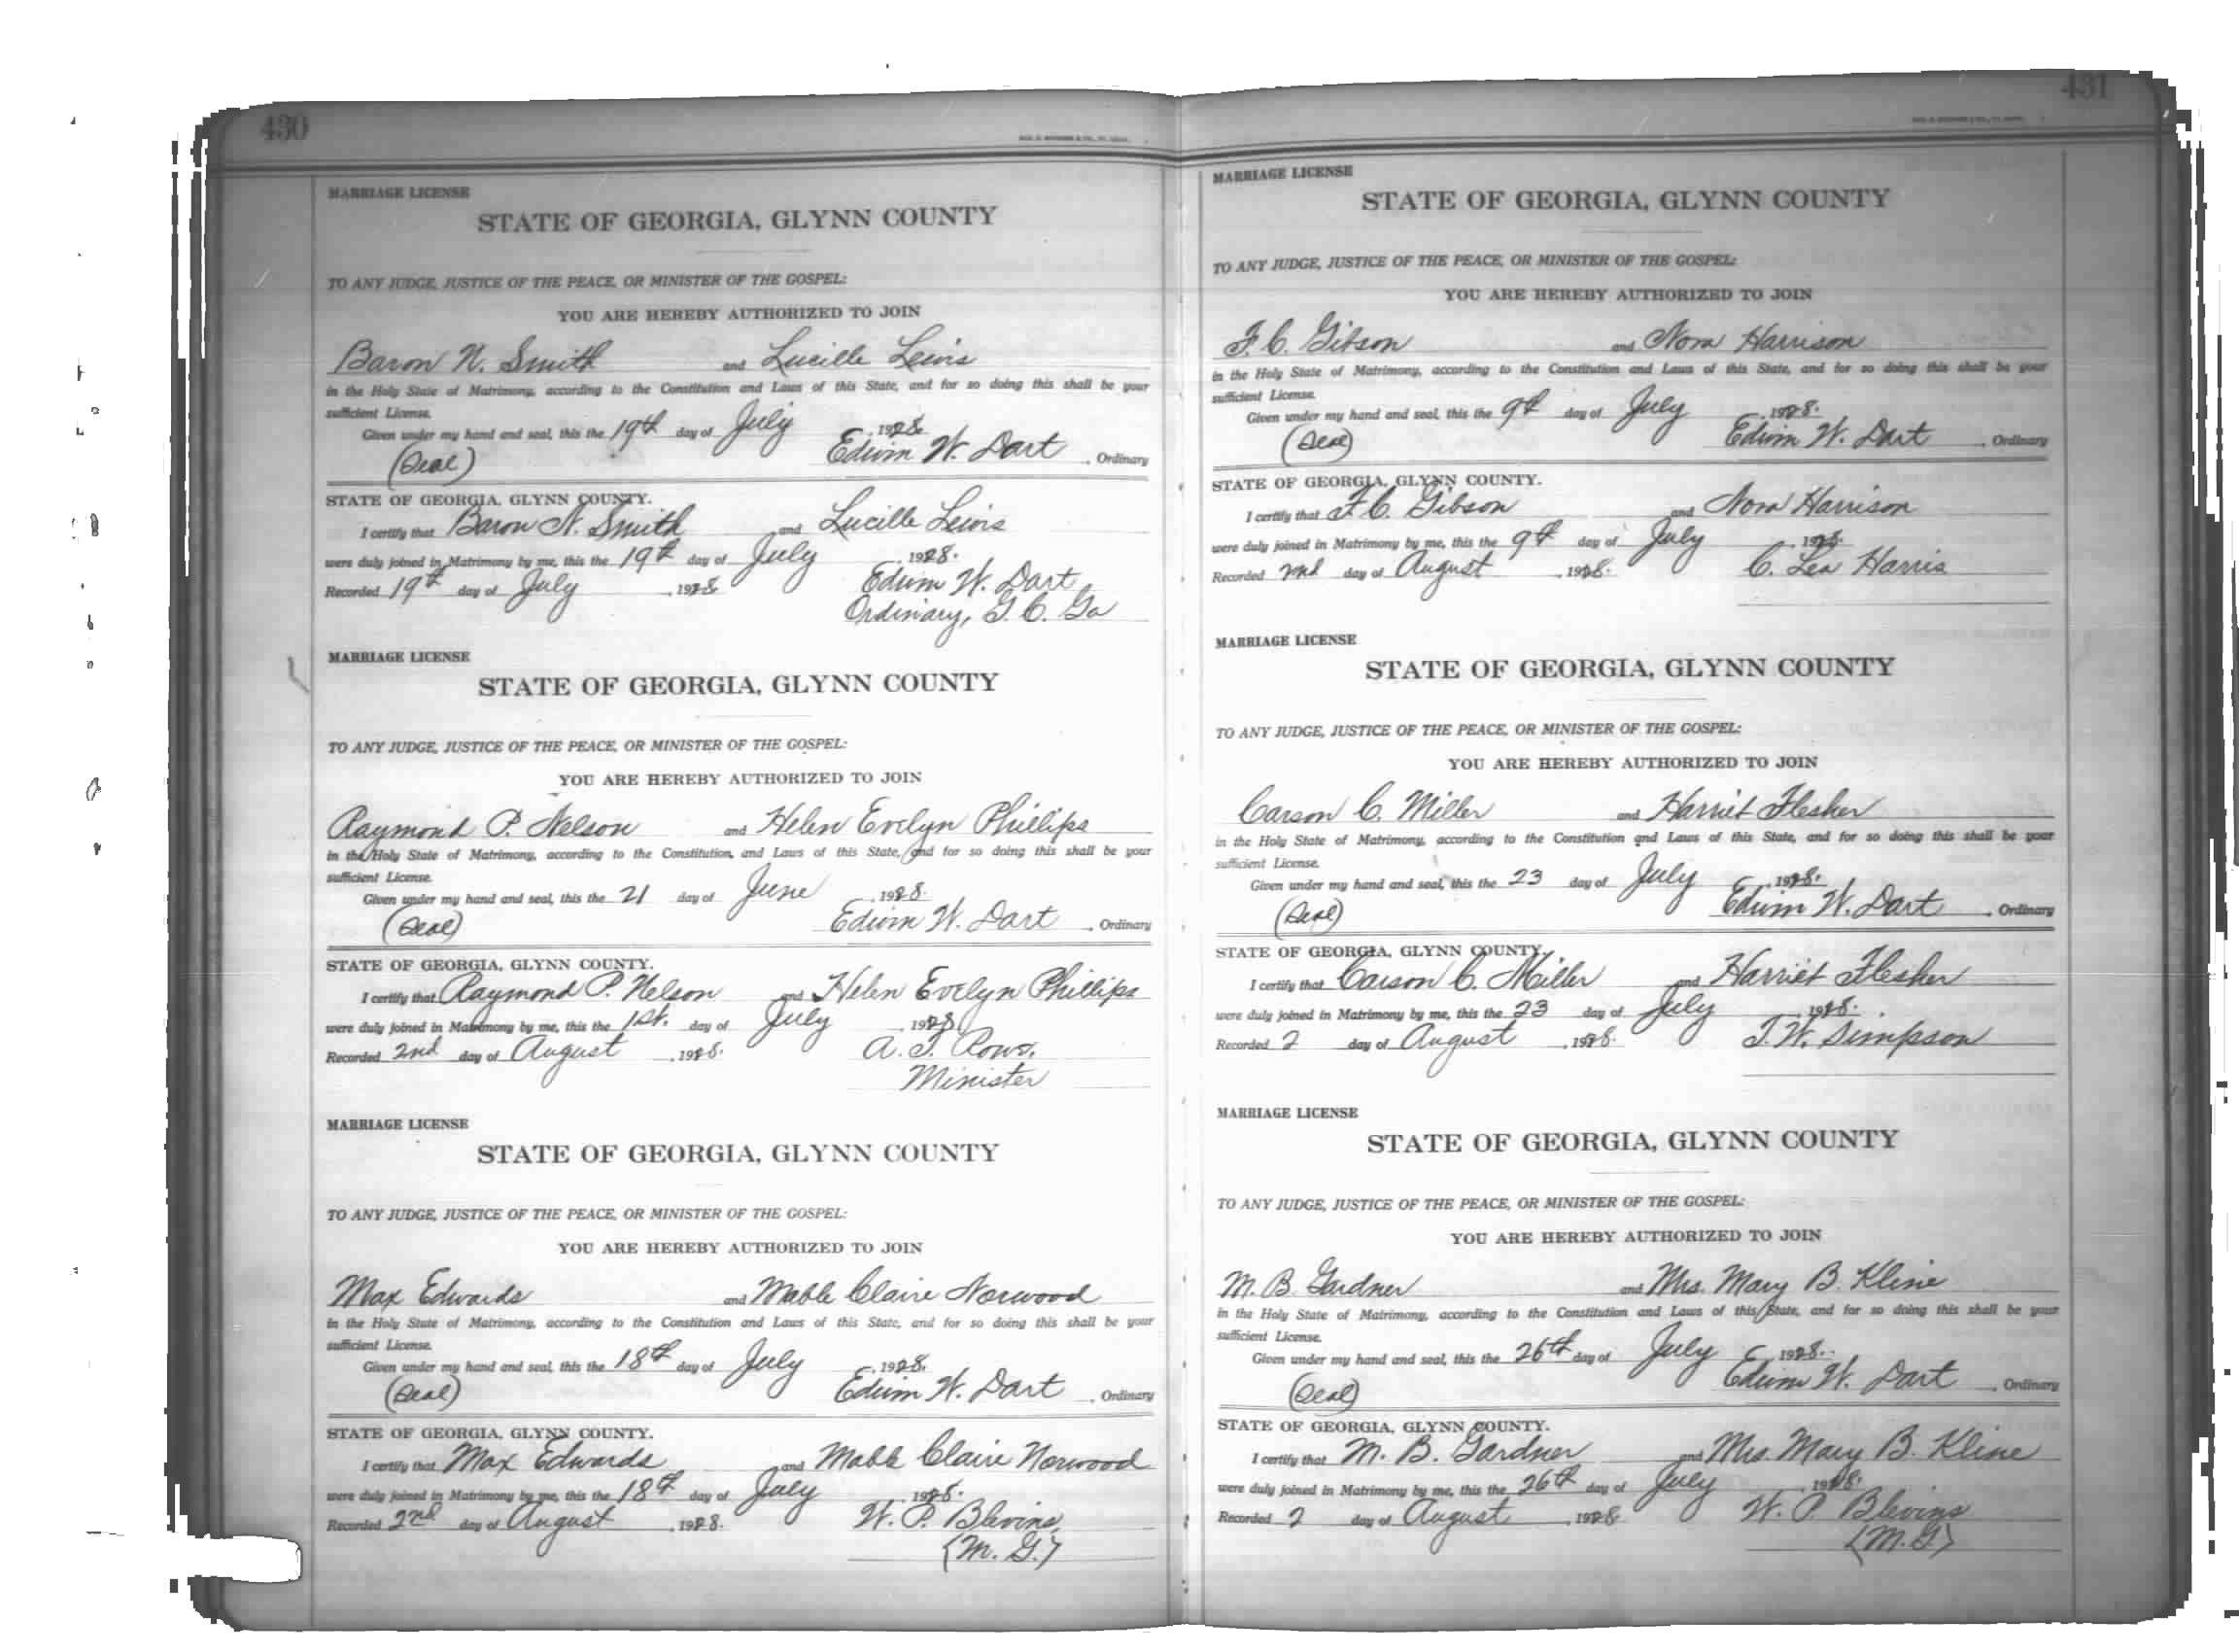 430
MARRIAGE LICENSE
STATE OF GEORGIA, GLYNN COUNTY
TO ANY JUDGE, JUSTICE OF THE PEACE, OR MINISTER OF THE GOSPEL:
YOU ARE HEREBY AUTHORIZED TO JOIN
Baron N. Smith and Lucille Lewis
in the Holy State of Matrimony, according to the Constitution and Laws of this State, and for so doing this shall be your
sufficient License.
Given under my hand and seal, this the 19th day of July, 1928.
(Seal) Edwin W. Dart, Ordinary
STATE OF GEORGIA, GLYNN COUNTY.
I certify that Baron N. Smith and Lucille Lewis
were duly joined in Matrimony by me, this the 19th day of July, 1928.
Recorded 19th day of July, 1928 Edwin W. Dart
Ordinary, G. C. Ga
MARRIAGE LICENSE
STATE OF GEORGIA, GLYNN COUNTY
TO ANY JUDGE, JUSTICE OF THE PEACE, OR MINISTER OF THE GOSPEL:
YOU ARE HEREBY AUTHORIZED TO JOIN
Raymond P. Nelson and Helen Evelyn Phillips
in the Holy State of Matrimony, according to the Constitution, and Laws of this State, and for so doing this shall be your
sufficient License.
Given under my hand and seal, this the 21 day of June, 1928.
(Seal) Edwin W. Dart, Ordinary
STATE OF GEORGIA, GLYNN COUNTY.
I certify that Raymond P. Nelson and Helen Evelyn Phillips
were duly joined in Matrimony by me, this the 1st. day of July, 1928
Recorded 2nd day of August, 1928. A. J.
Minister
MARRIAGE LICENSE
STATE OF GEORGIA, GLYNN COUNTY
TO ANY JUDGE, JUSTICE OF THE PEACE, OR MINISTER OF THE GOSPEL:
YOU ARE HEREBY AUTHORIZED TO JOIN
Max Edwards and Mable Claire Norwood
in the Holy State of Matrimony, according to the Constitution and Laws of this State, and for so doing this shall be your
sufficient License.
Given under my hand and seal, this the 18th day of July, 1928.
(Seal) Edwin W. Dart, Ordinary
STATE OF GEORGIA, GLYNN COUNTY.
I certify that Max Edwards and Mable Claire Norwood
were duly joined in Matrimony by me, this the 18th day of July, 1928.
Recorded 2nd day of August, 1928. W. P. Blevins,
(M. G.)
431
MARRIAGE LICENSE
STATE OF GEORGIA, GLYNN COUNTY
TO ANY JUDGE, JUSTICE OF THE PEACE, OR MINISTER OF THE GOSPEL:
YOU ARE HEREBY AUTHORIZED TO JOIN
F. C. Gibson and Nora Harrison
in the Holy State of Matrimony, according to the Constitution and Laws of this State, and for so doing this shall be your
sufficient License.
Given under my hand and seal, this the 9th day of July, 1928.
(Seal) Edwin W. Dart, Ordinary
STATE OF GEORGIA, GLYNN COUNTY.
I certify that F. C. Gibson and Nora Harrison
were duly joined in Matrimony by me, this the 9th day of July, 1928.
Recorded 2nd day of August, 1928. C. Lea Harris
MARRIAGE LICENSE
STATE OF GEORGIA, GLYNN COUNTY
TO ANY JUDGE, JUSTICE OF THE PEACE, OR MINISTER OF THE GOSPEL:
YOU ARE HEREBY AUTHORIZED TO JOIN
Carson C. Miller and Harriet Flesher
in the Holy State of Matrimony, according to the Constitution and Laws of this State, and for so doing this shall be your
sufficient License.
Given under my hand and seal, this the 23 day of July, 1928.
(Seal) Edwin W. Dart, Ordinary
STATE OF GEORGIA, GLYNN COUNTY.
I certify that Carson C. Miller and Harriet Flesher
were duly joined in Matrimony by me, this the 23 day of July, 1928.
Recorded 2 day of August, 1928. T. W. Simpson
MARRIAGE LICENSE
STATE OF GEORGIA, GLYNN COUNTY
TO ANY JUDGE, JUSTICE OF THE PEACE, OR MINISTER OF THE GOSPEL:
YOU ARE HEREBY AUTHORIZED TO JOIN
M. B. Gardner and Mrs. Mary B. Kline
in the Holy State of Matrimony, according to the Constitution and Laws of this State, and for so doing this shall be your
sufficient License.
Given under my hand and seal, this the 26th day of July, 1928.
(Seal) Edwin W. Dart, Ordinary
STATE OF GEORGIA, GLYNN COUNTY.
I certify that M. B. Gardner and Mrs. Mary B. Kline
were duly joined in Matrimony by me, this the 26th day of July, 1928.
Recorded 2 day of August, 1928 W. P. Blevins
(M. G.)